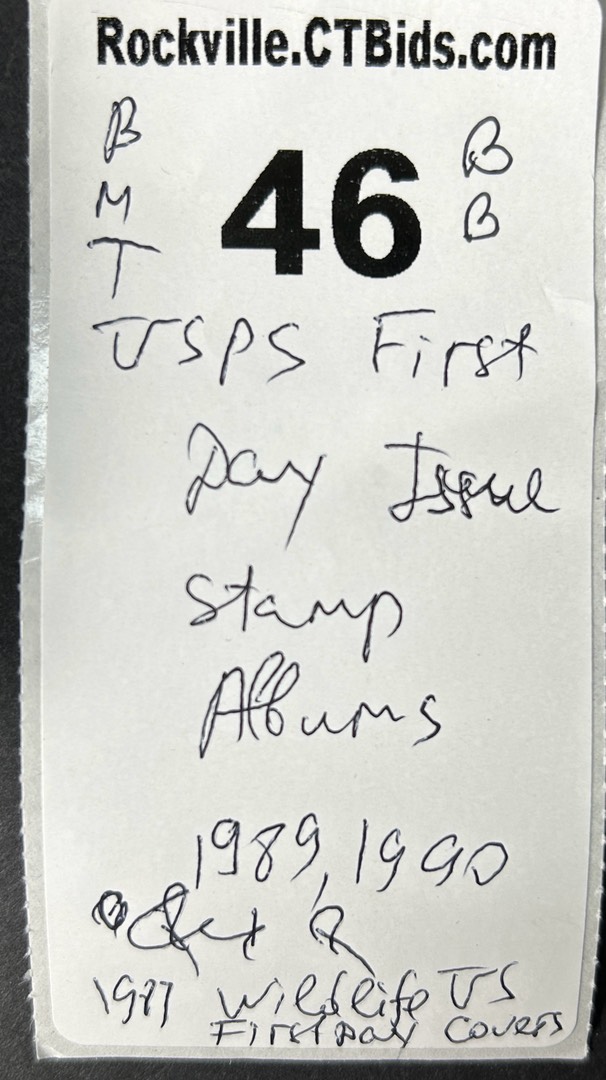 Rockville.CTBids.com
B
M
T
46
B
B
USPS First
Day Issue
Stamp
Albums
1989, 1990
1987 Wildlife US
First Day Covers